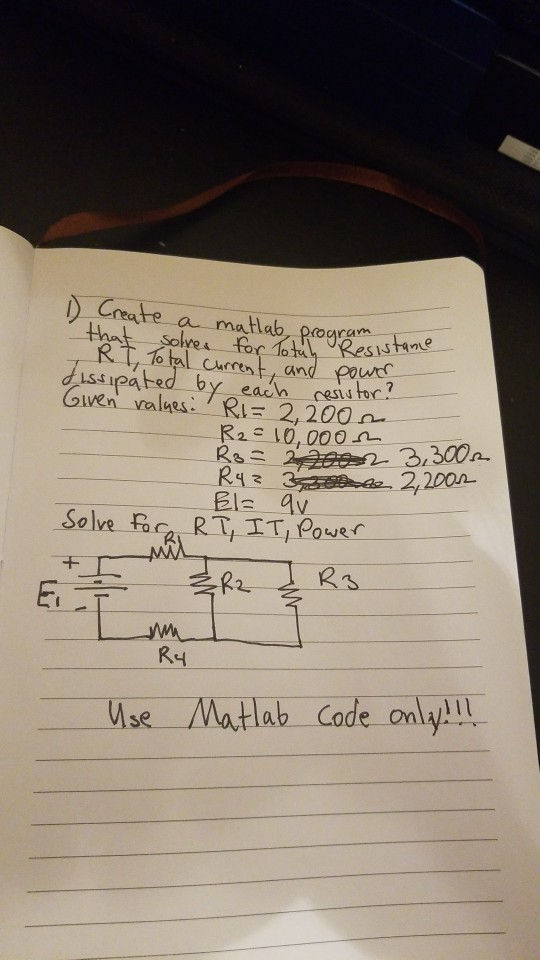 1) Create a matlab program
that solves for Total Resistance
, RT, Total current, and power
dissipated by each resistor?
Given values: R1= 2,200Ω
R2= 10,000Ω
R3= 3,300Ω
R4= 2,200Ω
E1= 9v
Solve for RT, IT, Power
R1
+
E1
R2
R3
-
R4
Use Matlab Code only!!!